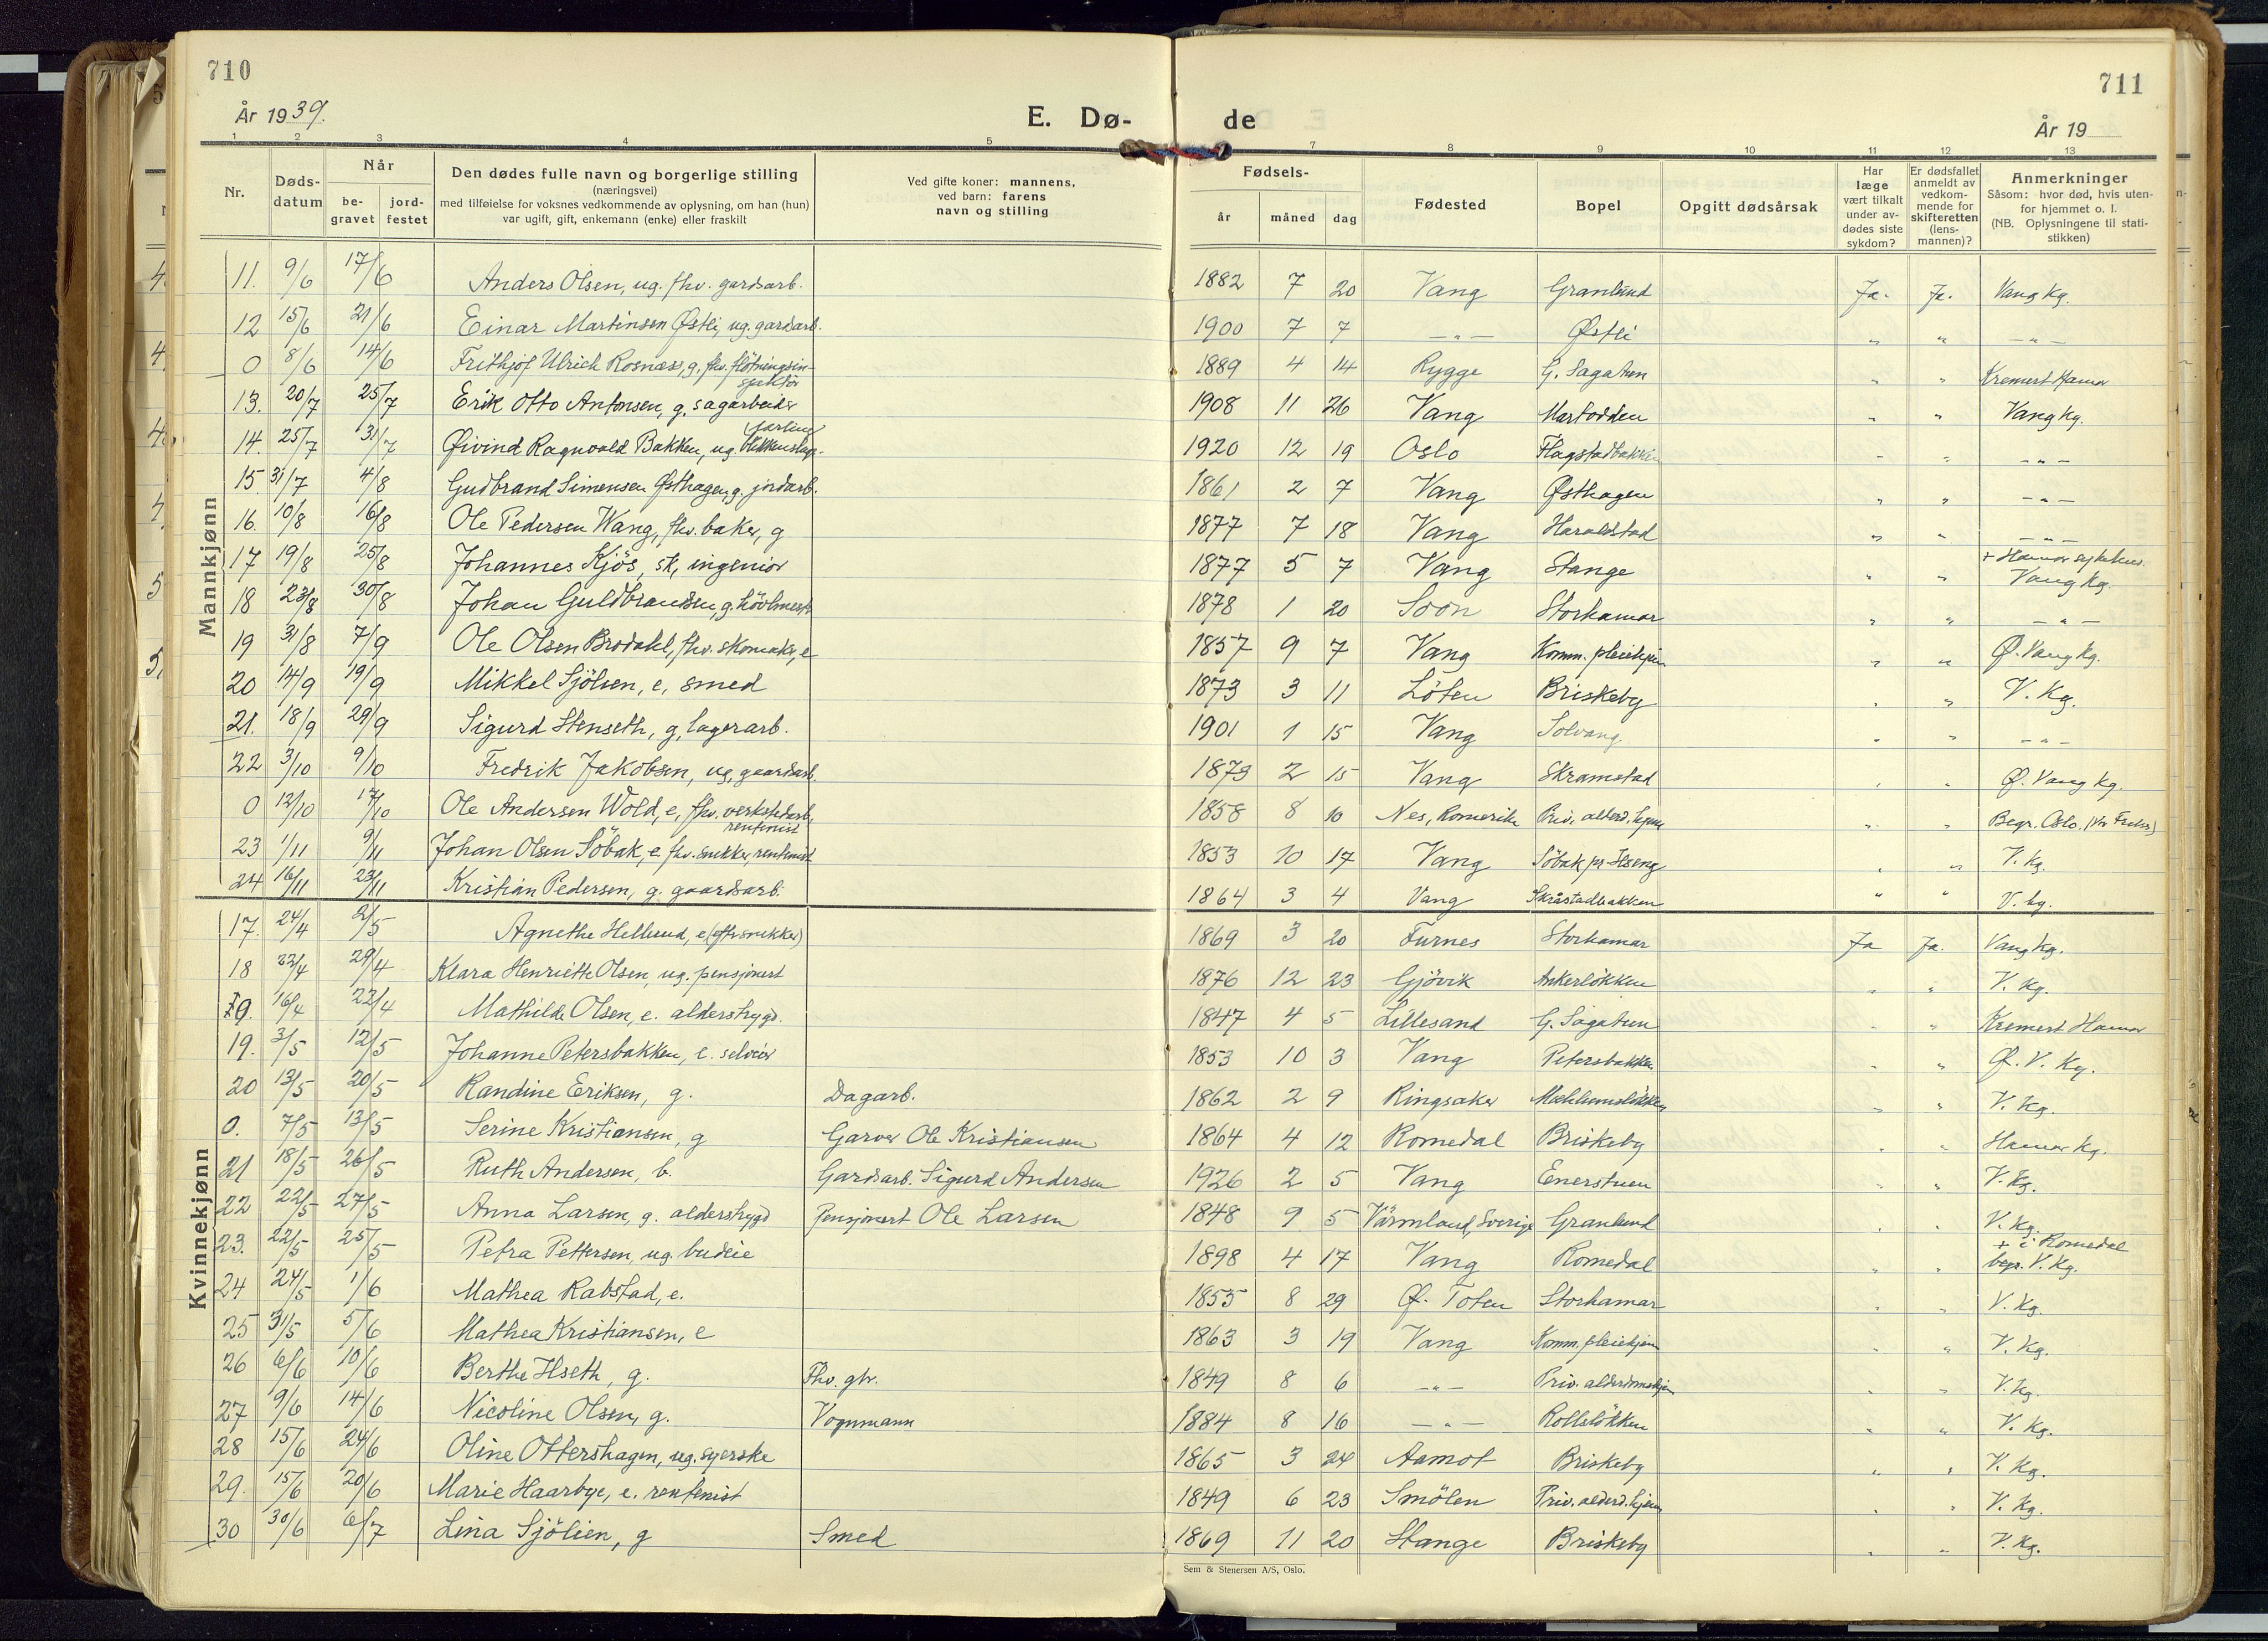 710
År 1939.
E. Dø-
1 2 3 4 5
Nr.
Døds-
datum
Når
be-
gravet
jord-
festet
Den dødes fulle navn og borgerlige stilling
(næringsvei)
med tilføielse for voksnes vedkommende av oplysning, om han (hun)
var ugift, gift, enkemann (enke) eller fraskilt
Ved gifte koner: mannens,
ved barn: farens
navn og stilling
711
de
År 19
7 8 9 10 11 12 13
Fødsels-
år måned dag
Fødested
Bopel
Opgitt dødsårsak
Har
læge
vært tilkalt
under av-
dødes siste
sykdom?
Er dødsfallet
anmeldt av
vedkom-
mende for
skifteretten
(lens-
mannen)?
Anmerkninger
Såsom: hvor død, hvis uten-
for hjemmet o. l.
(NB. Oplysningene til stati-
stikken)
Mannkjønn
11. 9/6 17/6 Anders Olsen, ug. fhv. gardsarb. 1882 7 20 Vang Granlund Ja. Ja. Vang kg.
12 15/6 21/6 Einar Martinsen Østli, ug. gardarb. 1900 7 7 — " — Østli " " — " —
0 8/6 14/6 Frithjof Ulrich Rosnæss, g. fhv. flötningsin-
spektör 1889 4 14 Rygge G. Sagatun " " Kremert Hamar
13. 20/7 25/7 Erik Otto Antonsen, g. sagarbeider 1908 11 26 Vang Martodden " " Vang kg.
14. 25/7 31/7 Øivind Ragnvald Bakken, ug. 1920 12 19 Oslo Flagstadbakken " " — " —
15. 31/7 4/8 Gudbrand Simensen Østhagen, g. jordarb. 1861 2 7 Vang Østhagen " " — " —
16. 10/8 16/8 Ole Pedersen Wang, fhv. baker, g 1877 7 18 Vang Haraldstad " " — " —
17 19/8 25/8 Johannes Kjös, sk, ingeniör 1877 5 7 Vang Stange " " + Hamar sykehus.
Vang kg.
18 23/8 30/8 Johan Guldbrandsen, g. hövlmest. 1878 1 20 Soon Storhamar " " — " —
19 31/8 7/9 Ole Olsen Brodahl, fhv. skomaker, e 1857 9 7 Vang Komm. pleiehjem " " Ø. Vang kg.
20 14/9 19/9 Mikkel Sjölien, e, smed 1873 3 11 Löten Briskeby " " V. Kg.
21. 18/9 29/9 Sigurd Stenseth, g, lagerarb. 1901 1 15 Vang Solvang. " " — " —
22 3/10 9/10 Fredrik Jakobsen, ug, gaardsarb. 1879 2 15 Vang Skramstad " " Ø. Vang kg.
0 12/10 17/10 Ole Andersen Wold, e, fhv. verkstedarb,
rentenist 1858 8 10 Nes, Romerike Priv. alderd. hjem " " Begr. Oslo.
23 1/11 9/11 Johan Olsen Söbak, e. fhv. snekker, rentenist 1853 10 17 Vang Söbak pr. Ilseng " " V. Kg.
24 16/11 23/11 Kristian Pedersen, g. gaardsarb. 1864 3 4 Vang Skråstadbakken " " V. kg.
Kvinnekjønn
17. 24/4 2/5 Agnethe Hellund, e (eftr snekker) 1869 3 20 Furnes Storhamar Ja Ja. Vang kg.
18 22/4 29/4 Klara Henriette Olsen, ug. pensjonert 1876 12 23 Gjövik Ankerlökken " " V. kg.
16/4 22/4 Mathilde Olsen, e. alderstrygd. 1847 4 5 Lillesand G. Sagatun " " Kremert Hamar
19. 3/5 12/5 Johanne Petersbakken, e. selveier 1853 10 3 Vang Petersbakken " " Ø. V. Kg.
20 13/5 20/5 Randine Eriksen, g. Dagarb. 1862 2 9 Ringsaker Mæhlumslökken " " V. Kg.
0. 7/5 13/5 Serine Kristiansen, g Garver Ole Kristiansen 1864 4 12 Romedal Briskeby " " Hamar kg.
21 18/5 26/5 Ruth Andersen, b. Gardsarb. Sigurd Andersen 1926 2 5 Vang Enerstuen " " V. Kg.
22 22/5 27/5 Anna Larsen, g. alderstrygd Pensjonert Ole Larsen 1848 9 5 Värmland, Sverige Granlund " " V. Kg.
23. 22/5 25/5 Petra Pettersen, ug. budeie 1898 4 17 Vang Romedal " " + i Romedal
begr. V. Kg.
24 24/5 1/6 Mathea Rabstad, e. 1853 8 29 Ø. Toten Storhamar V. Kg.
25 31/5 5/6 Mathea Kristiansen, e 1863 3 19 Vang Komm. pleiehjem " " V. Kg.
26 6/6 10/6 Berthe Ilseth, g. Fhv. gbr. 1849 8 6 — " — Priv. alderdomshjem " " V. Kg.
27 9/6 14/6 Nicoline Olsen, g. Vognmann 1884 8 16 — " — Rollslökken " " V. Kg.
28 15/6 24/6 Oline Ottershagen, ug. syerske 1865 3 24 Aamot Briskeby " " V. Kg.
29. 15/6 20/6 Marie Haarbye, e. rentenist 1849 6 23 Smölen Priv. alderd. hjem " " V. Kg.
30 30/6 6/7 Lina Sjölien, g Smed 1869 11 20 Stange Briskeby " " V. Kg.
Sem & Stenersen A/S, Oslo.